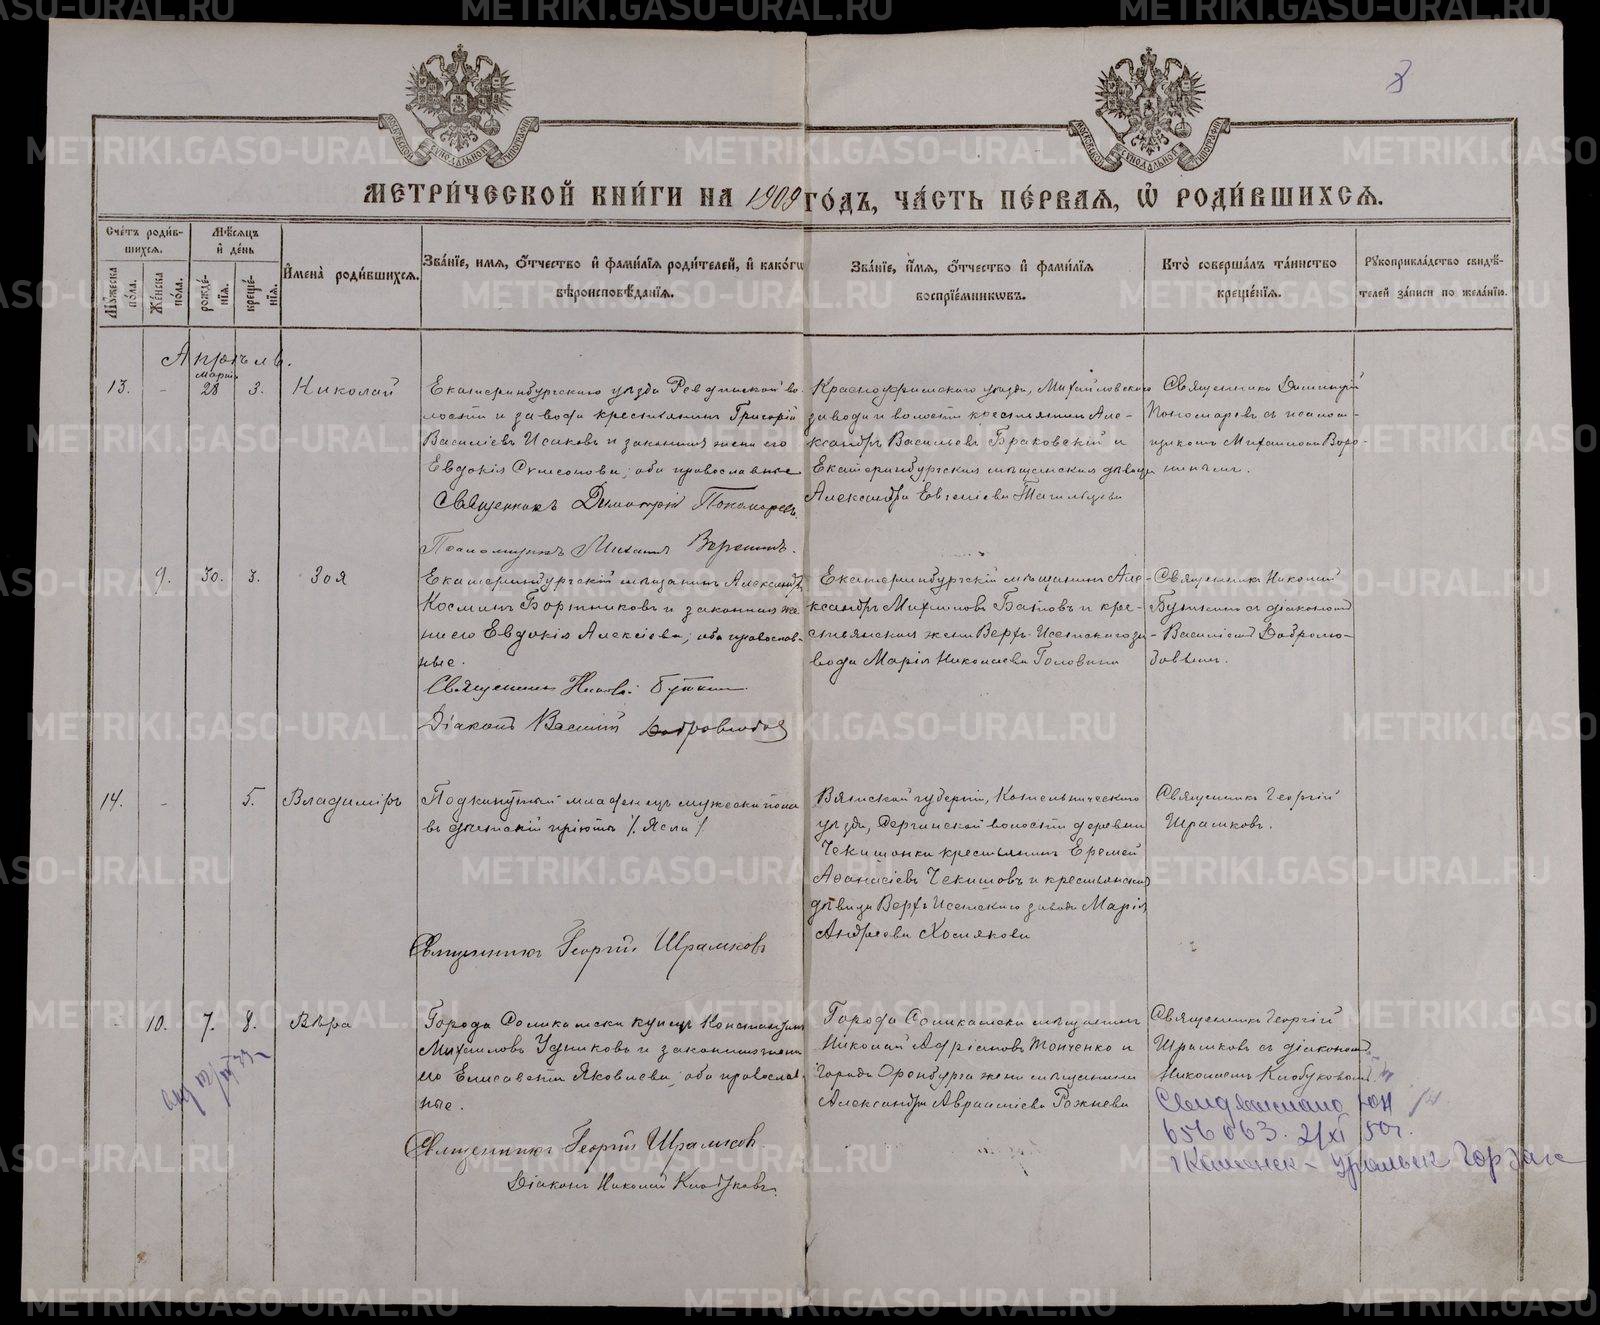 8
МОСКОВСКОЙ СѴНОДАЛЬНОЙ ТИПОГРАФІИ
МОСКОВСКОЙ СѴНОДАЛЬНОЙ ТИПОГРАФІИ
МЕТРИ́ЧЕСКОЙ КНИ́ГИ НА 1909 ГО́ДЪ, ЧА́СТЬ ПЕ́РВАЯ, Ѡ РОДИ́ВШИХСЯ.
Сче́тъ роди́в-
шихся.
Мѣ́сяцъ
и҆ де́нь
Мꙋ́жеска по́ла.
Же́нска по́ла.
рожде́-
нїя.
креще́-
нїя.
И҆мена̀ роди́вшихся.
Зва́нїе, имя, ѻ҆́тчество и҆ фами́лїя роди́телей, и҆ како́гѡ
вѣроисповѣ́данїя.
Зва́нїе, и҆́мя, ѻ҆́тчество и҆ фами́лїя
воспрїе́мникѡвъ.
Кто̀ соверша́лъ та́инство
креще́нїя.
Рꙋкоприкла́дство свидѣ́-
телей за́писи по жела́нїю.
Апрѣль.
13.
-
марта
28
3.
Николай
Екатеринбургскаго уѣзда Ревдинской во-
лости и завода крестьянинъ Григорій
Василіевъ Исаковъ и законная жена его
Евдокія Сѵмеонова; оба православные
Священникъ Димитрій Пономаревъ.
Псаломщикъ Михаилъ Воронинъ.
Красноуфимскаго уѣзда, Михайловскаго
завода и волости крестьянинъ Але-
ксандръ Васильевъ Браковскій и
Екатеринбургская мѣщанская дѣвица
Александра Евгеніева
Священникъ Димитрій
Пономаревъ съ псалом-
щикомъ Михаиломъ Воро-
нинымъ.
9.
30.
3.
Зоя
Екатеринбургскій мѣщанинъ Александръ
Косминъ Бортниковъ и законная же-
на его Евдокія Алексіева; оба православ-
ные.
Священникъ Николай Буткинъ
Діаконъ Василій Добролюбовъ
Екатеринбургскій мѣщанинъ Але-
ксандръ Михаиловъ Батовъ и кре-
стьянская жена Верхъ-Исетскаго за-
вода Марія Николаева Головина
Священникъ Николай
Буткинъ съ діакономъ
Василіемъ Добролю-
бовымъ.
14.
-
5.
Владиміръ
Подкинутый младенецъ мужеска пола
въ дѣтскій пріютъ /Ясли/
Священникъ Георгій Шрамковъ
Вятской губерніи, Котельническаго
уѣзда, волости деревни
крестьянинъ Еремей
Аѳанасіевъ Чекишовъ и крестьянская
дѣвица Верхъ-Исетскаго завода Марія
Андреева Хомякова
Священникъ Георгій
Шрамковъ.
10.
7.
8.
Вѣра
Города Соликамска купецъ Константинъ
Михаиловъ Удниковъ и законная жена
его Елисавета Яковлева; оба православ-
ные.
Священникъ Георгій Шрамковъ
Діаконъ Николай Клобуковъ.
Города Соликамска мѣщанинъ
Николай Адріановъ Топченко и
города Оренбурга жена мѣщанина
Александра Авраамiева Рожнева
Священникъ Георгій
Шрамковъ съ діакономъ
Николаемъ Клобуковымъ
Свидетельство ЮН
656063. 2/XI 50г.
г Каменск-Уральск Горзагс